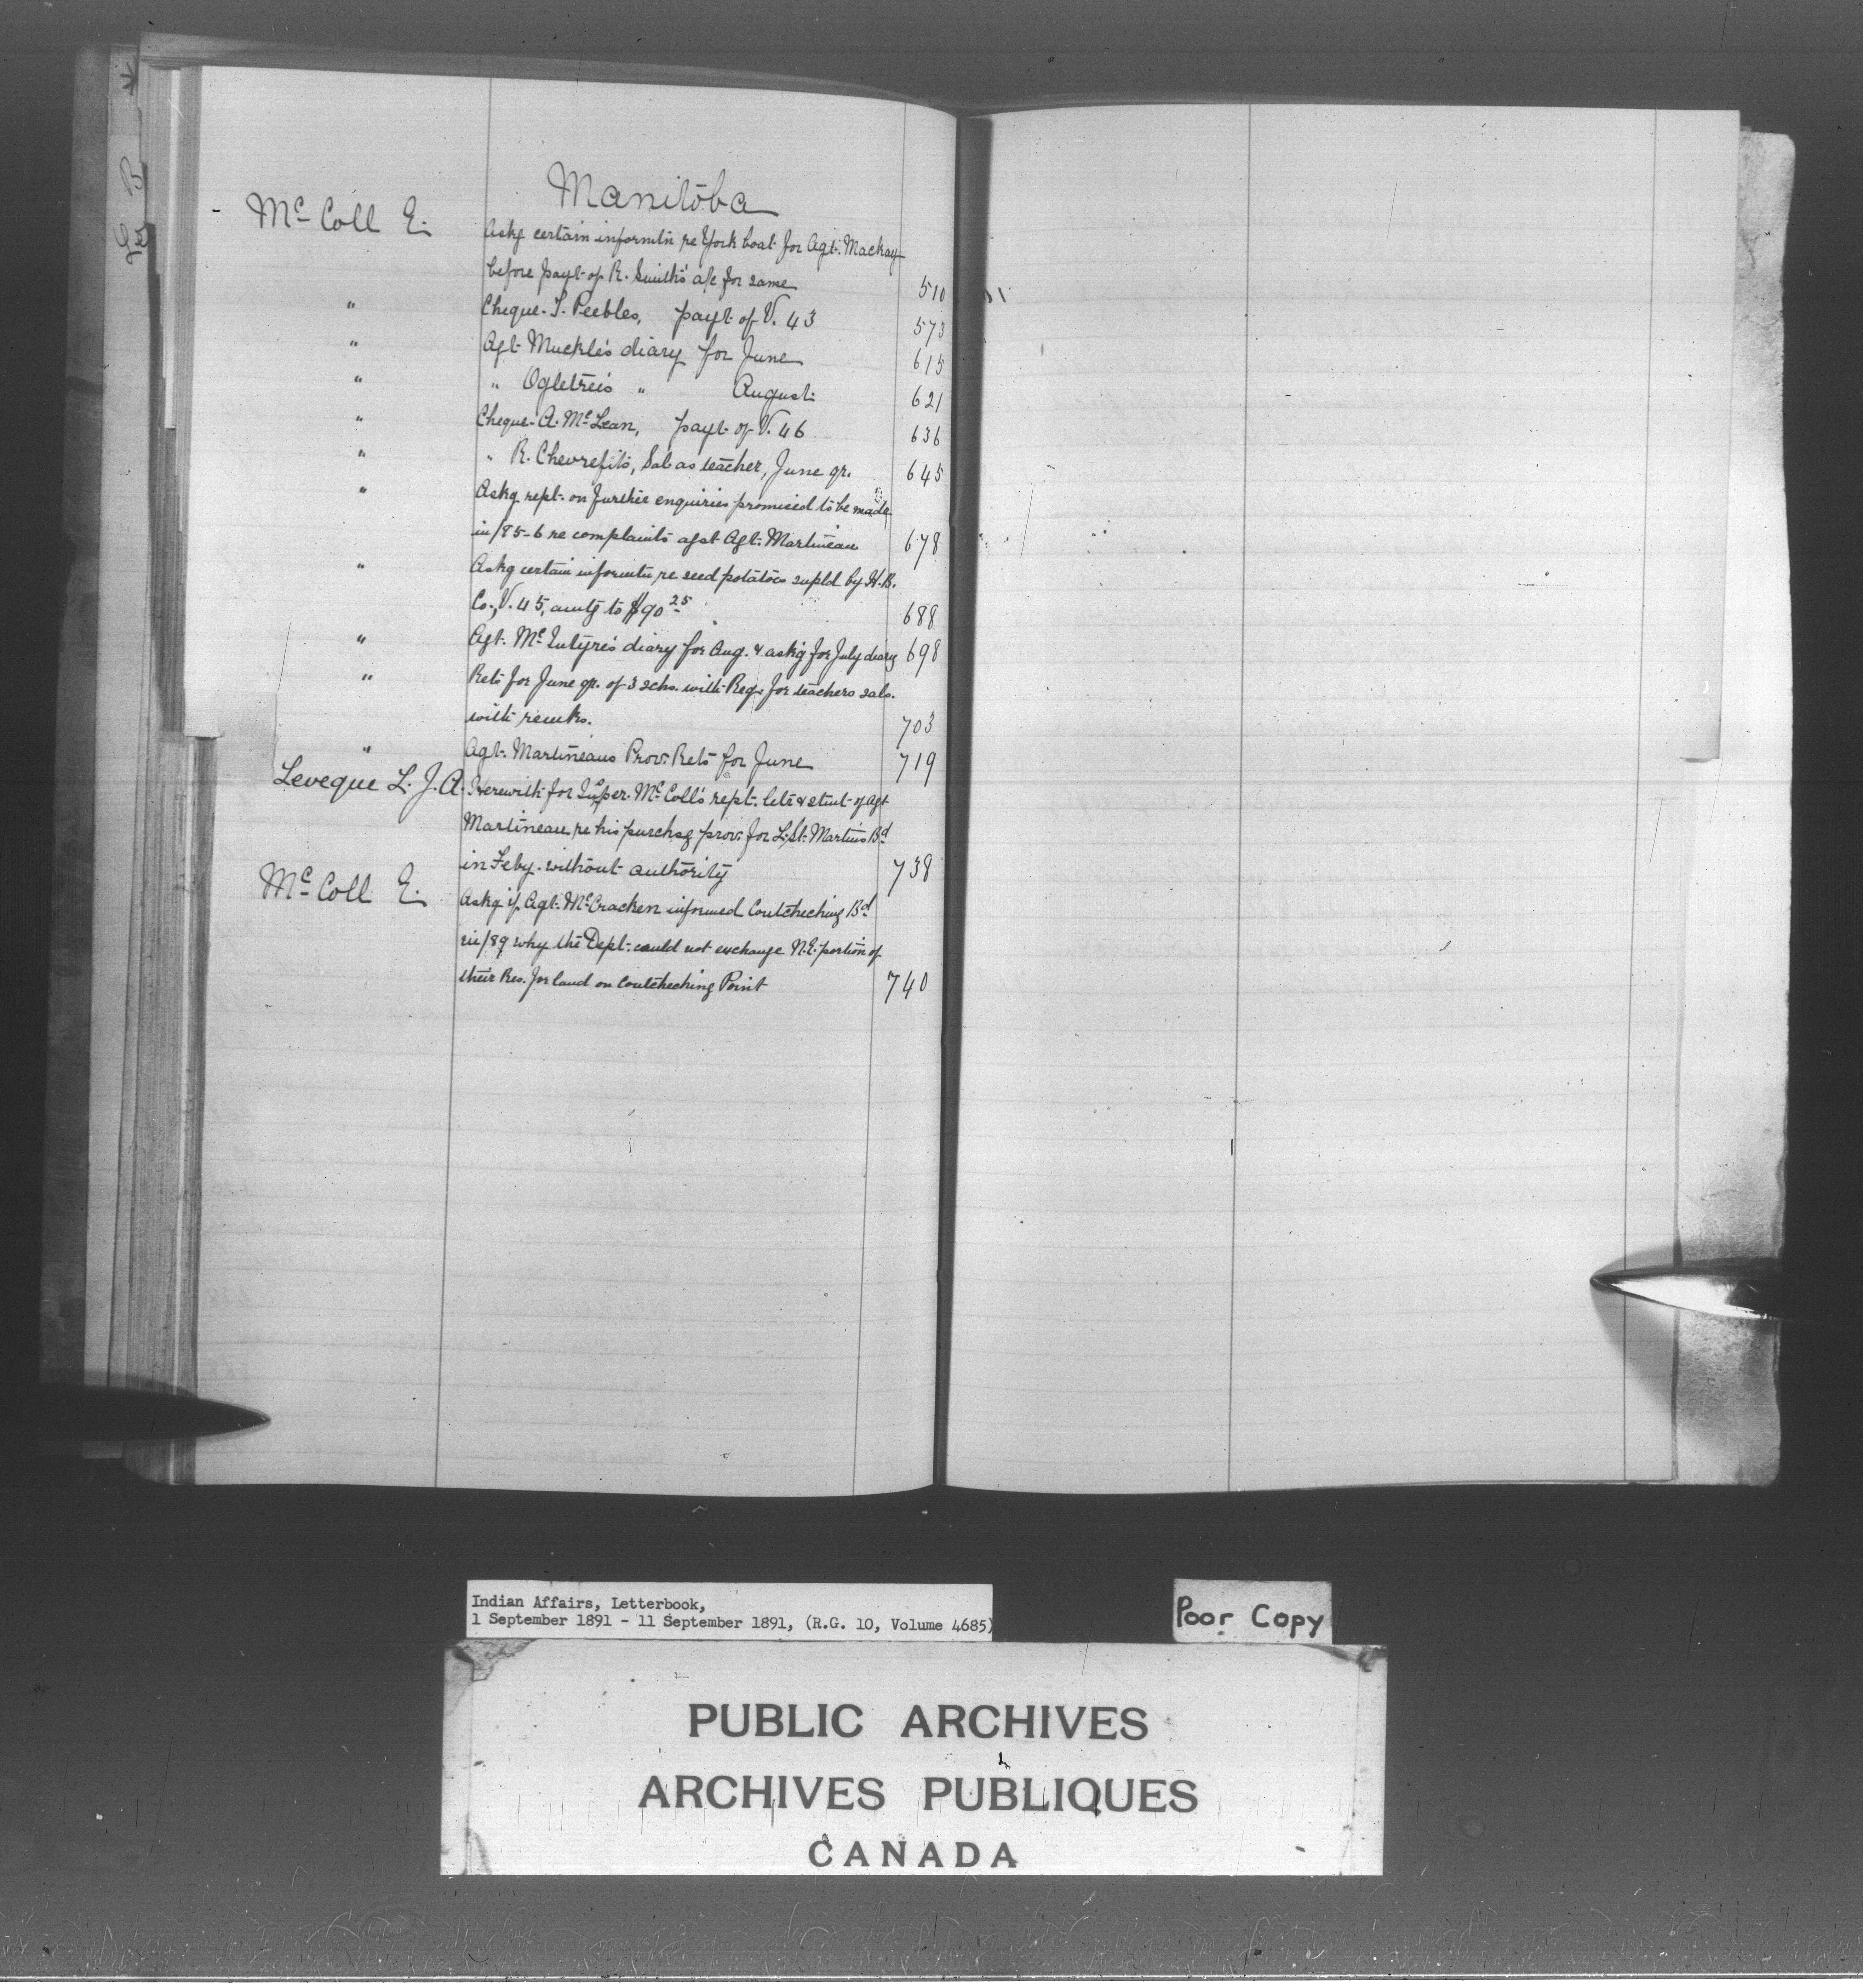 Manitoba
Mc Coll E. Askg certain informtn re York boat for Agt. Mackay
before payt of R. Smith's a/c for same 510
" Cheque - T. Peebles, payt of V. 43 573
" Agt Muckle's diary for June 615
" " Ogletree's " August 621
" Cheque - A. McLean, payt of V. 46 636
" " R. Chevrefils, Sal as teacher, June qr. 645
" Askg rept. on further enquiries promised to be made
in /85-6 re complaints agst Agt. Martineau 678
" Askg certain informtn re seed potatoes supld by H.B.
Co., V. 45, amtg to $90 25 688
" Agt. McIntyre's diary for Aug. & askg for July diary 698
" Rets for June qr. of 3 schs. with Req. for teachers sals.
with remks. 703
" Agt. Martineaus Prov. Rets for June 719
Leveque L. J. A. Herewith for Insper. McColl's rept. lets & stmt of Agt
Martineau re his purchsg prov. for L. St. Martins Bd
in Feby. without authority 738
Mc Coll E. Askg if Agt. McCracken informed Coutcheching Bd
in /89 why the Dept. could not exchange N.E. portion of
their Res. for land on Coutcheching Point 740
Indian Affairs, Letterbook,
1 September 1891 - 11 September 1891, (R.G. 10, Volume 4685)
Poor Copy
PUBLIC ARCHIVES
ARCHIVES PUBLIQUES
CANADA